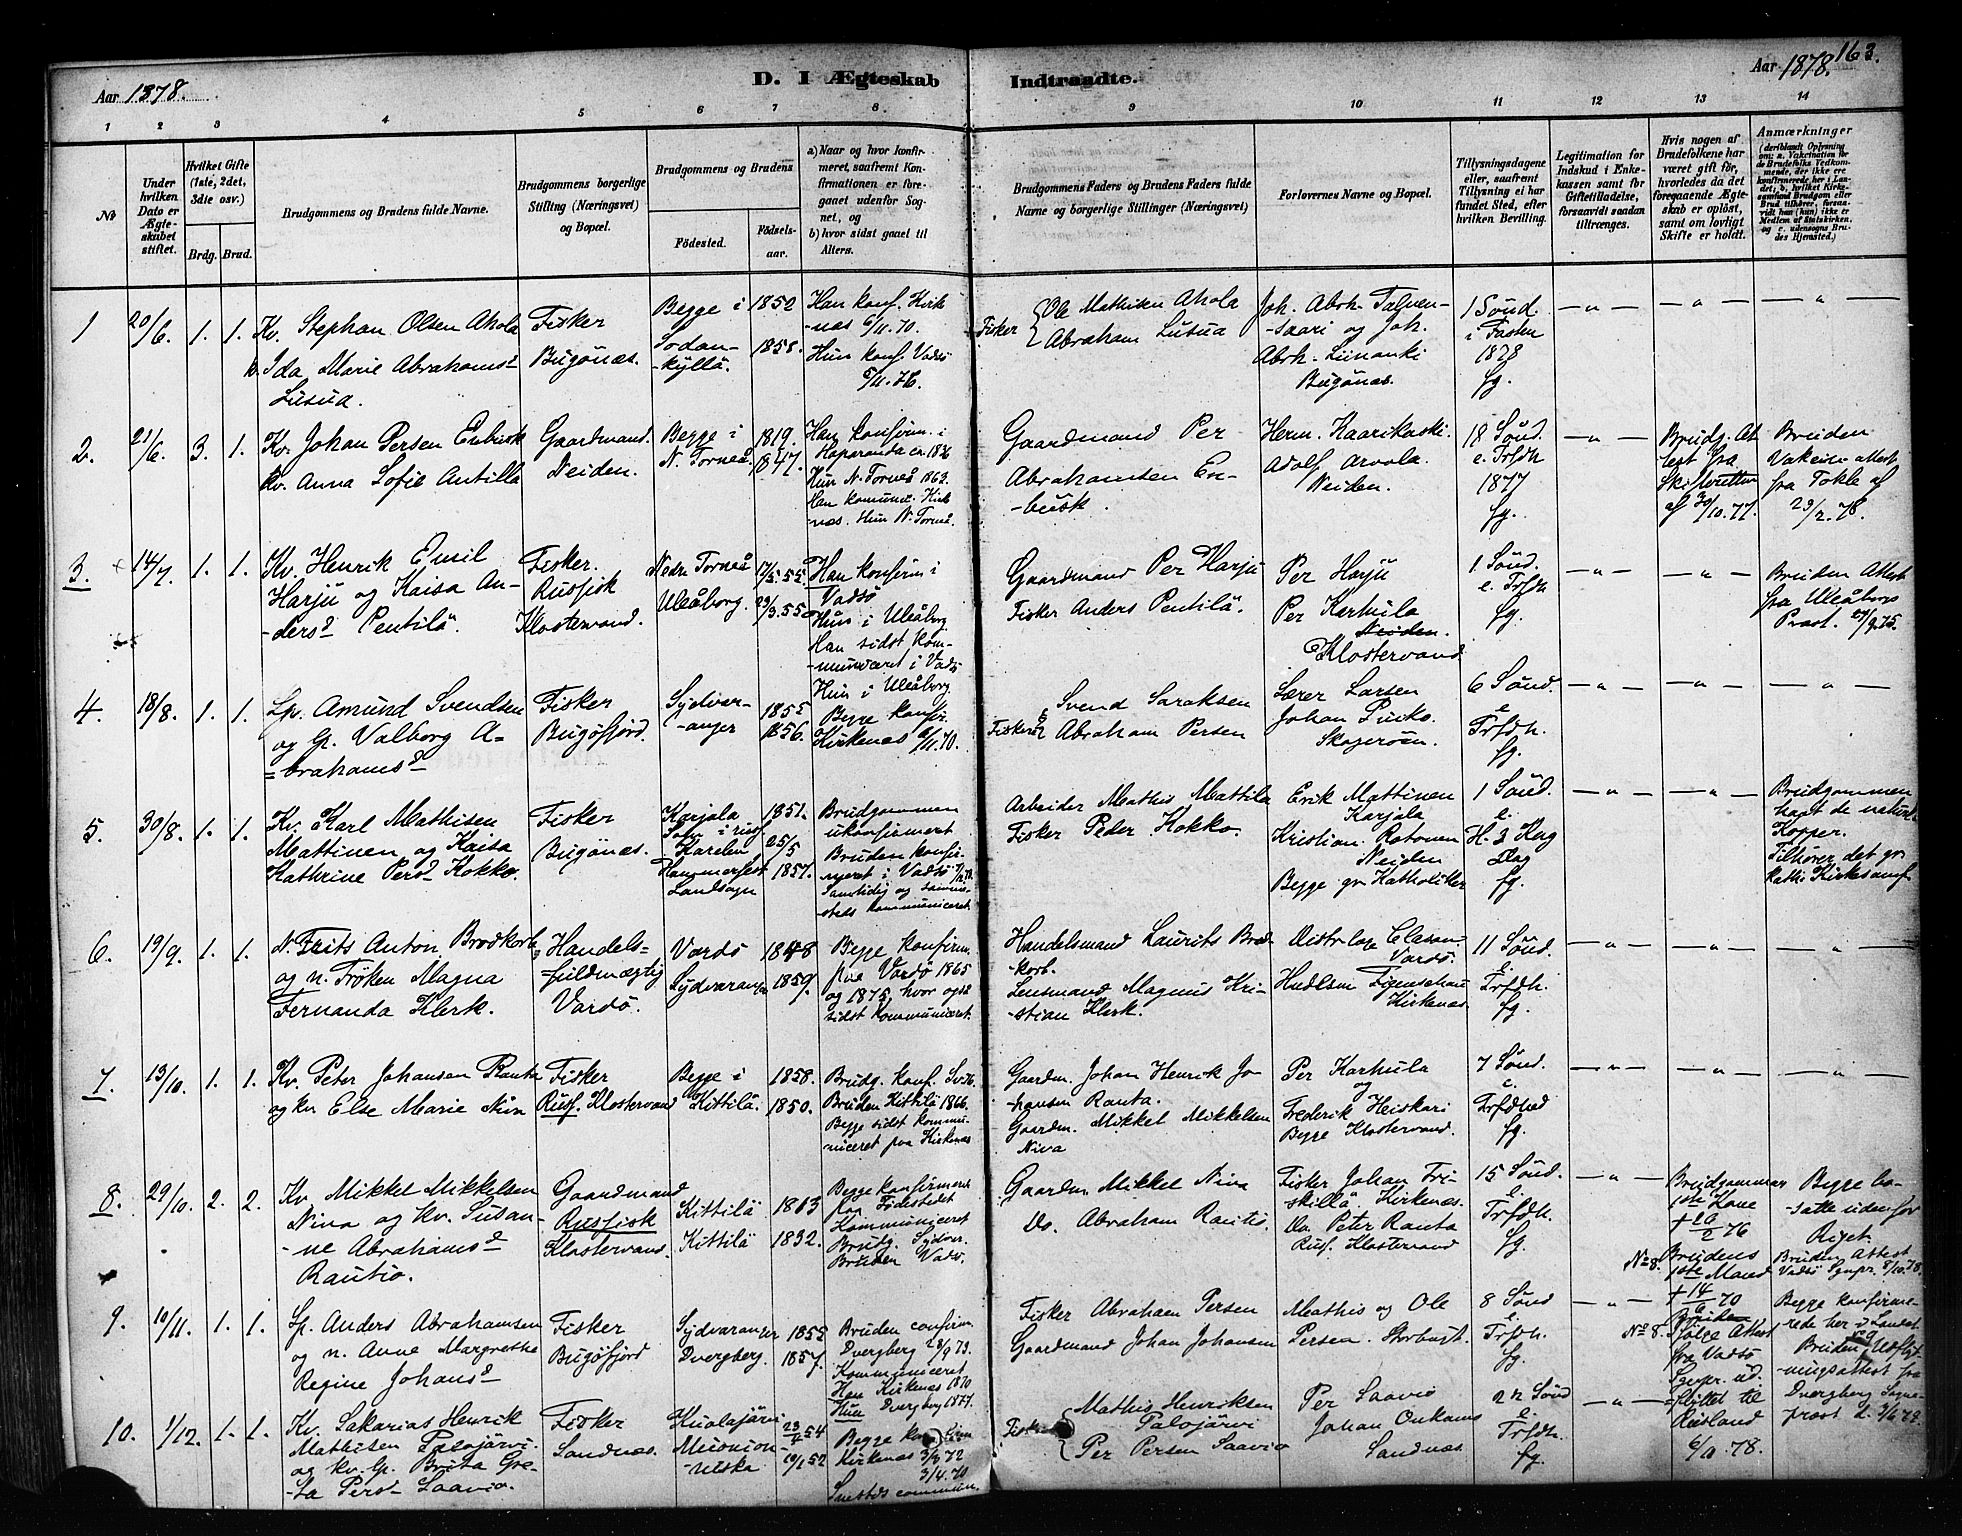 Aar 1878.
D. I Ægteskab Indtraadte.
Aar 1878. 163.
1 2 3 4 5 6 7 8 9 10 11 12 13 14
No
Under hvilken Dato er Ægteskabet stiftet.
Hvilket Gifte (1ste, 2det, 3die osv.)
Brdg. Brud.
Brudgommens og Brudens fulde Navne.
Brudgommens borgerlige Stilling (Næringsvei) og Bopæl.
Brudgommens og Brudens
Fødested.
Fødselsaar.
a) Naar og hvor konfirmeret, saafremt Konfirmationen er foregaaet udenfor Sognet, og
b) hvor sidst gaaet til Alters.
Brudgommens Faders og Brudens Faders fulde Navne og borgerlige Stillinger (Næringsvei)
Forlovernes Navne og Bopæl.
Tillysningsdagene eller, saafremt Tillysning ei har fundet Sted, efter hvilken Bevilling.
Legitimation for Indskud i Enkekassen samt for Giftetilladelse, forsaavidt saadan tiltrænges.
Hvis nogen af Brudefolkene har været gift før, hvorledes da det foregaaende Ægteskab er opløst, samt om lovligt Skifte er holdt.
Anmærkninger
1 20/6. 1. 1.
Kv. Stephan Olsen Ahola
Ida Marie Abrahamsd
Lusua.
Fisker
Bugönæs.
Begge i
Sodan-
-kyllä.
1852
1858.
Han konf. Kirk-
-næs 6/11. 70.
Hun konf. Vadsö
5/11. 76.
Fisker { Ole Mathisen Ahola
Abraham Lusua
Joh. Abrh. Talven-
-saari og Joh.
Abrh. Liinanki
Bugönæs.
1 Sönd.
i Fasten
1878
fg.
2. 21/6. 3. 1.
Kv. Johan Persen Enbusk
kv. Anna Sofie Antilla
Gaardmand.
Neiden.
Begge i
N. Torneå.
1819.
1847.
Han konfirm. i
Haparanda ca. 1836
Hun N. Torneå 1863.
Han kommun. Kirk-
næs. Hun N. Torneå.
Gaardmand Per
Abrahamsen En-
-busk.
Herm. Kaarikaski
Adolf Arvola.
Neiden.
18 Sönd.
e. Trfdh
1877
fg.
Brudg. At
test fra
Skifteretten
af 30/10. 77.
Bruden
Vakcin. attest
fra Tokle af
23/2. 78.
3. 14/7. 1. 1.
Kv. Henrik Emil
Harju og Kaisa An-
-dersd Pentilä.
Fisker.
Russisk
Klostervand.
Nedre Torneå
Uleåborg.
17/5 55
23/3. 55
Han konfirm i
Vadsö
Hun i Uleåborg
Han sidst kom-
-municeret i Vadsö
Hun i Uleåborg
Gaardmand Per Harju
Fisker Anders Pentilä.
Per Harju
Per Karhula
Neiden.
Klostervand
1 Sönd.
e. Trfdh
fg.
Bruden Attest
fra Uleåborgs
Præst. 27/9. 75.
4. 18/8. 1. 1.
Lp. Amund Svendsen
og lp. Valborg A-
=brahamsd
Fisker
Bugöfjord.
Sydvar-
-anger
1855
1856.
Begge konfir.
Kirkenæs 6/11. 70.
Fiskere Svend Saraksen
Abraham Persen
Lærer Larsen
Johan Pusko.
Skogeröen.
6 Sönd.
e
Trfdh.
fg.
5. 30/8. 1. 1.
Kv. Karl Mathisen
Mattinen og Kaisa
Kathrine Persd Kokko.
Fisker
Bugönæs.
Karjala
Sogn i rus
Karelen
Hammerfest
Landsogn
1851.
25/5
1857.
Brudgommen
ukonfirmeret
Bruden konfir-
meret i Vadsö
Samtidig og sammesteds kommuniceret.
Arbeider Mathis Mattila
Fisker Peder Kokko.
Erik Mattinen
Karjala
Kristian Ratonen
Neiden
Begge gr Katholiker
1 Sönd.
e.
H. 3 Kng
Dag
fg.
Brudgommen
havt de naturl.
Kopper.
Tilhører det gr
kath. Kirkesamf.
6. 19/9. 1. 1.
N. Frits Anton Brodkorb
og n. Fröken Magna
Fernanda Klerk.
Handels-
-fuldmægtig
Vardö.
Vardö
Sydvaranger
1848
1859.
Begge konfirm.
paa Vardö 1865
og 1875, hvor også
sidst kommuniceret.
Handelsmand Laurits Brod-
-korb.
Lensmand Magnus Kri-
-stian Klerk.
Distr læge Clason
Vardö.
Hndlsm Figenschau
Kirkenæs
11 Sönd.
e.
Trfdh.
fg.
7. 13/10. 1. 1.
Kv. Peter Johansen Ranta
og kv. Else Marie Niva
Fisker
Russ. Klostervand
Begge i
Kittilä.
1858.
1850.
Brudg. konf. Svik.
Bruden Kittilä 1866.
Begge sidst kommu-
niceret paa Kirkenæs
Gaardm. Johan Henrik Jo-
-hansen Ranta.
Gaardm. Mikkel Mikkelsen
Niva
Per Karhula
og
Frederik Heiskari
Begge Klostervand.
7 Sönd.
e.
Trfdhed
fg.
8. 29/10. 2. 2.
Kv. Mikkel Mikkelsen
Niva og kv. Susan-
-ne Abrahamsd
Rautio.
Gaardmand
Russisk
Klostervand.
Kittilä
Kittilä
1813
1832.
Begge konfirmeret
paa Födestedet
Kommuniceret
Brudg. Sydvar.
Bruden Vadsö.
Gaardm. Mikkel Niva
Do. Abraham Rautio.
Fisker Johan Fri-
skillä Kirkenæs.
Do. Peter Ranta
Russ. Klostervand
15 Sönd.
e.
Trfdh.
fg.
Brudgommens
1ste Kone
+ 26/2 76
No 8. Brudens
1ste Mand
+ 14/6 70
Begge bo-
satte udenfor
Riget.
Bruden Attest
Vadsö Sgnpr. 8/10. 78.
9. 10/11. 1. 1.
Lp. Anders Abrahamsen
og n. Anne Margrethe
Regine Johansd
Fisker
Bugöfjord
Sydvaranger
Dvergberg.
1852
1857.
Bruden confirm.
Dvergberg 28/9 73.
Kommuniceret
Han Kirkenæs 1870
Hun Dvergberg 1877.
Fisker Abraham Persen
Gaardmand Johan Johansen
Mathis og Ole
Persen. Storbugt.
8 Sönd
e.
Trfdh.
fg.
No 8. Ifølge Attest
fra Vadsö
Sgnpr. ud-
-flyttet til
Rusland
6/11. 78.
Begge konfirme-
rede her i Landet.
No 9
Bruden Udflyt-
-ningsattest fra
Dvergberg Sogne-
præst
10. 1/12. 1. 1.
Kv. Sakarias Henrik
Mathisen Palojärvi.
og kv. lp. Brita Gre-
-ta Persd Saavio.
Fisker
Sandnæs.
Kuolajärvi
Muonion-
-niska
54
52
Begge konfirm
Kirkenæs 3/3 72
3/4. 70
commun.
Fiskere Mathis Henriksen
Palojärvi
Per Persen Saavio
Per Saavio
Johan Onkamo
Sandnæs.
22 Sönd
e.
Trfdh.
fg.